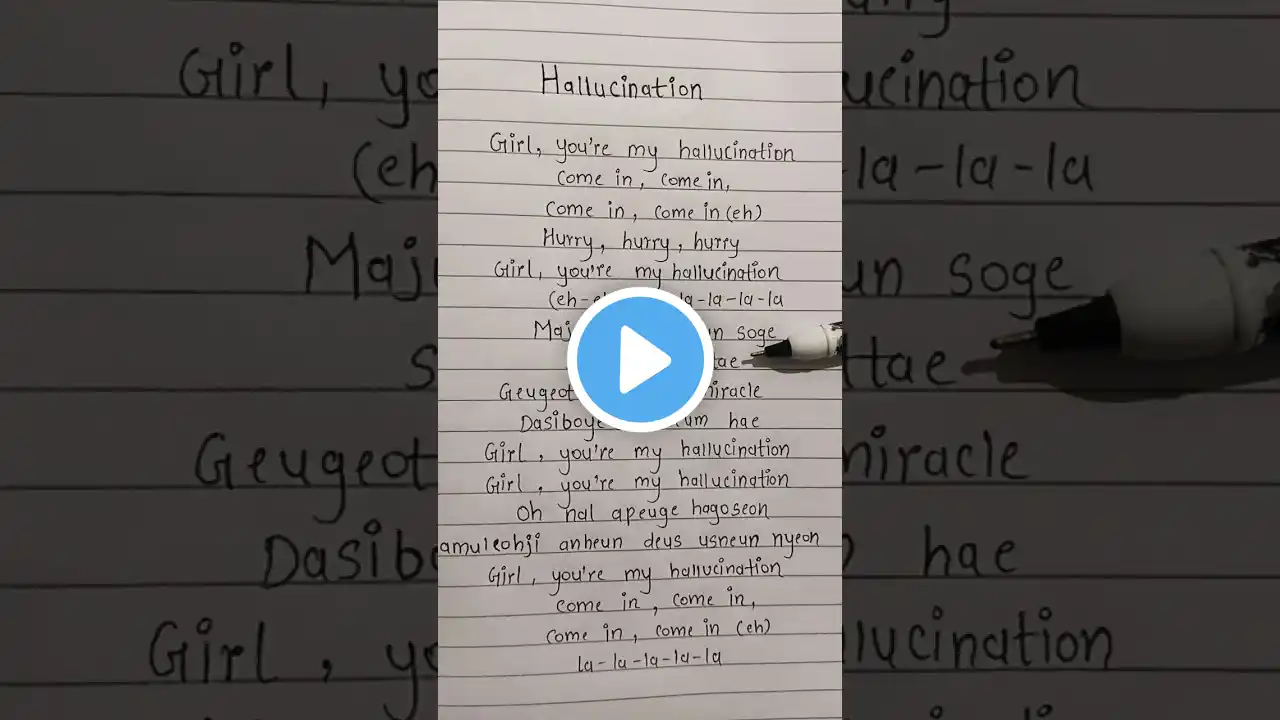 Hallucination
Girl, you're my hallucination
Come in, come in,
Come in, come in (eh)
Hurry, hurry, hurry
Girl, you're my hallucination
(eh- la-la-la-la
soge
Geugeot miracle
hae
Girl, you're my hallucination
Girl, you're my hallucination
Oh nal apeuge hagoseon
amuleohji anheun deus usneun nyeon
Girl, you're my hallucination
come in, come in,
come in, come in (eh)
la-la-la-la-la